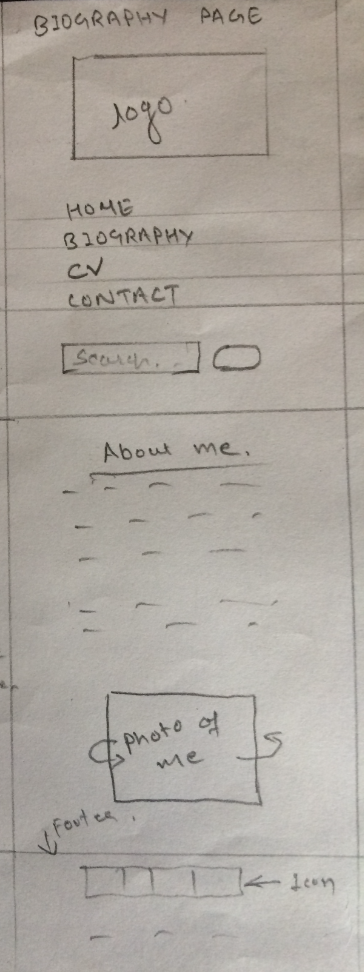 BIOGRAPHY PAGE
logo
HOME
BIOGRAPHY
CV
CONTACT
Search.
About me.
photo of
me
Footer.
Icon